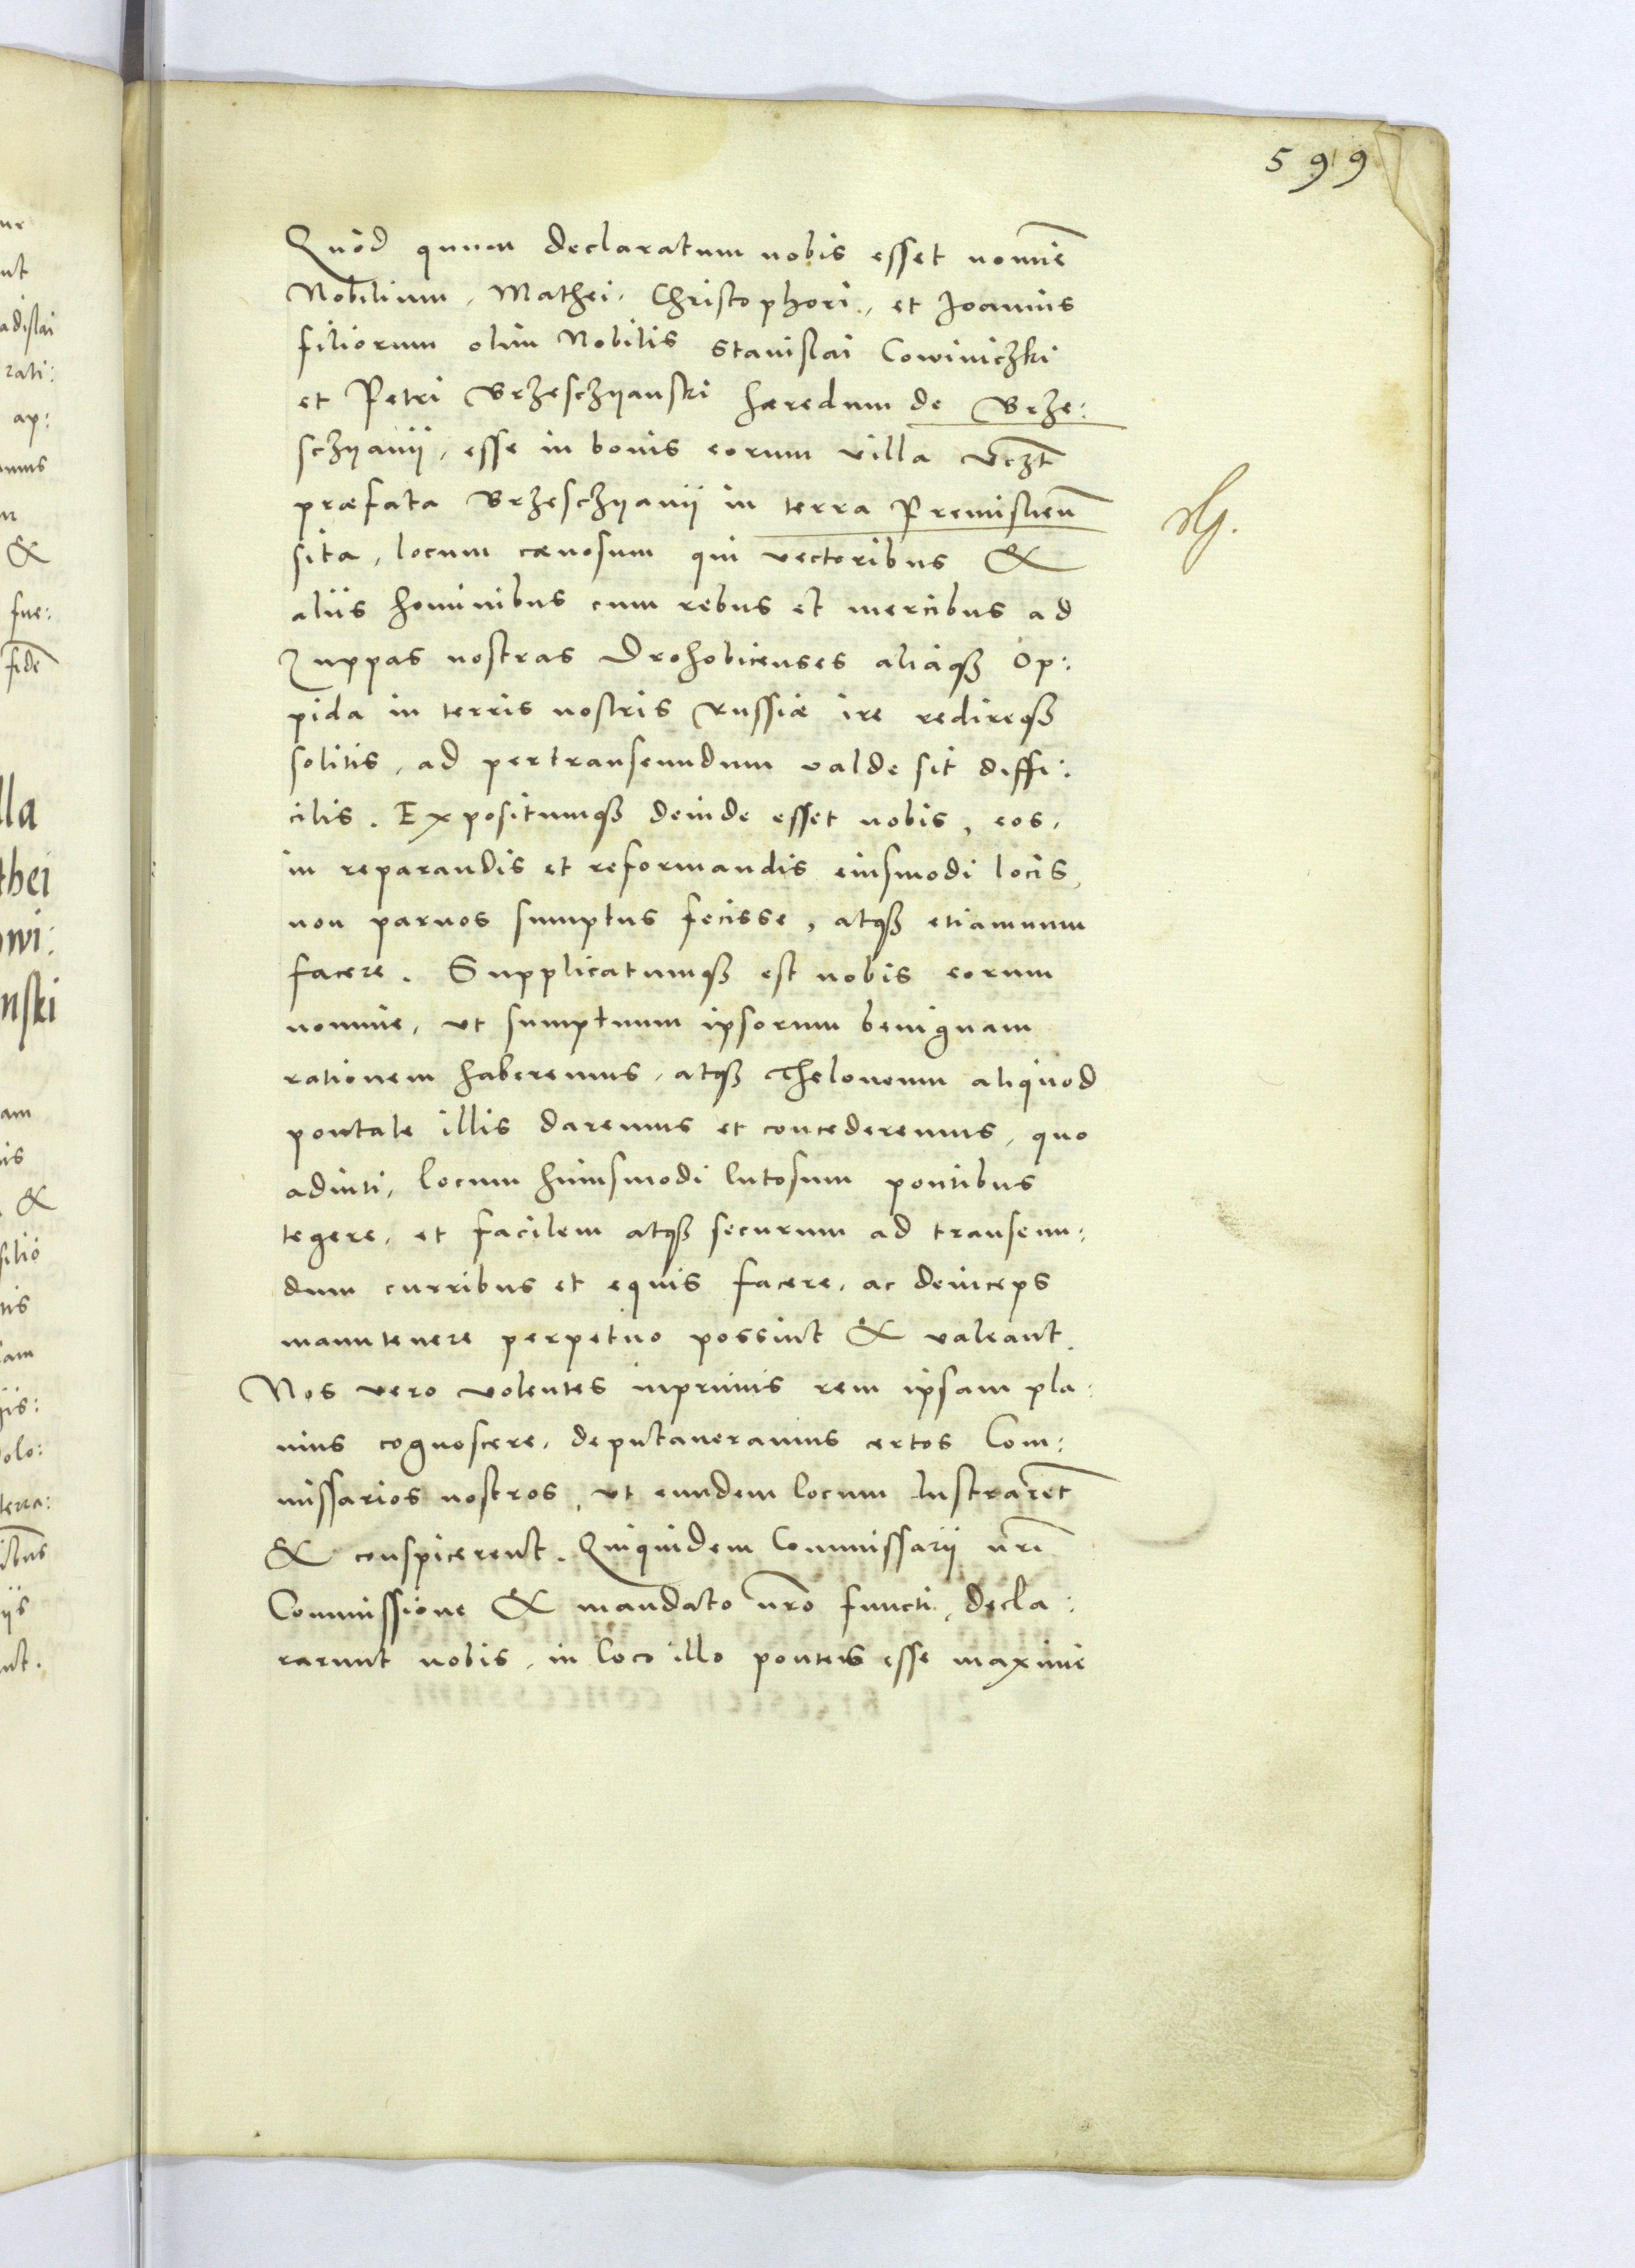 599
Quod quum declaratum nobis esset nomīe
Nobilium, Mathei, Christophori, et Joannis
filiorum olim Nobilis Stanislai Cowiniczki
et Petri Brzesczyanski hæredum de Brze:
sczyanii, esse in bonis eorum villa vczt
præfata Brzesczyanii in terra Premislieñ
sita, locum cænosum qui vectoribus &
aliis hominibus cum rebus et mercibus ad
Zuppas nostras Drohobicenses aliaqȝ op:
pida in terris nostris Russiæ ire redireqȝ
solitis, ad pertranseundum valde sit diffi:
cilis. Expositumqȝ deinde esset nobis, eos,
in reparandis et reformandis eiusmodi locis,
non paruos sumptus fecisse, atqȝ etiamnum
facere. Supplicatumqȝ est nobis eorum
nomine, vt sumptuum ipsorum benignam
rationem haberemus, atqȝ Theloneum aliquod
pontale illis daremus et concederemus, quo
adiuti, locum huiusmodi lutosum pontibus
tegere, et facilem atqȝ securum ad transeun:
dum curribus et equis facere, ac deinceps
manutenere perpetuo possint & valeant.
Nos vero volentes inprimis rem ipsam pla:
nius cognoscere, deputaueramus certos Com:
missarios nostros, vt eundem locum lustrarēt
& conspicerent. Quiquidem Commissarii nr̄i
Commissione & mandato nr̄o functi, decla:
rarunt nobis, in loco illo ponteis esse maxime